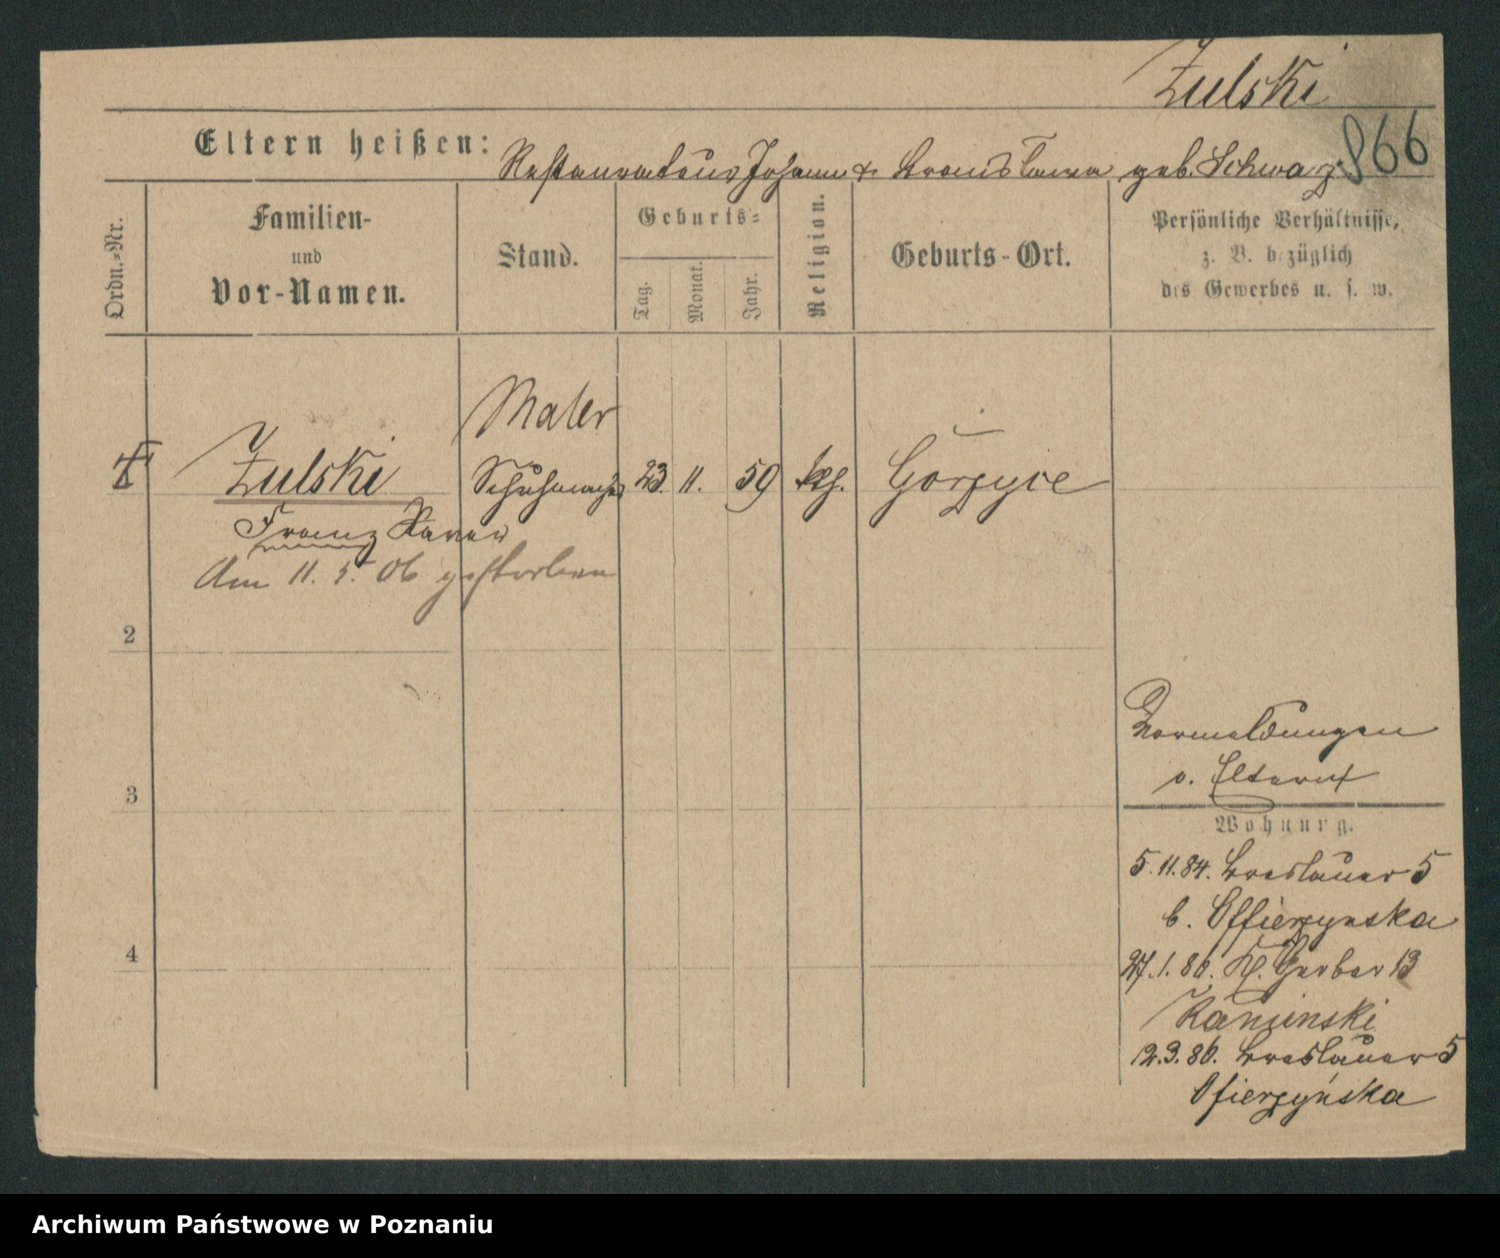 Zulski
866
Eltern heißen: Restaurateur Johann & Bronislawa geb. Schwarz
Ordn.-Nr.
Familien-
und
Vor-Namen.
Stand.
Geburts-
Tag.
Monat.
Jahr.
Religion.
Geburts-Ort.
Persönliche Verhältnisse,
z. B. bezüglich
des Gewerbes u. s. w.
Maler
Zulski Schuhmacher 23. 11. 59 kth. Górzyce
Franz Xaver
Am 11. 5. 06 gestorben
2
Vormeldungen
v. Eltern
3
Wohnung.
5.11.84. Breslauer 5
b. Offierzynska
4
27.1.86. Kl. Gerber 13
Kaminski
12.3.86. Breslauer 5
Ofierzyńska
Archiwum Państwowe w Poznaniu